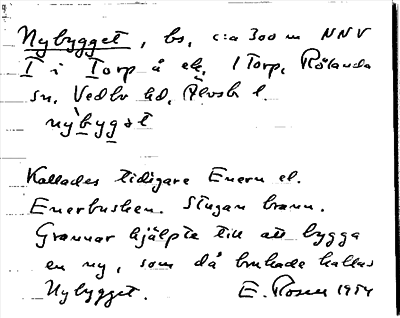 Nybygget, bs, c:a 300 m NNV
T i Torp å ek, 1 Torp, Rölanda
sn, Vedbo hd, Älvsb l.
nybygət
Kallades tidigare Enern el.
Enerbusken. Stugan brann.
Grannar hjälpte till att bygga
en ny, som då brukade kallas
Nybygget. E. Rosen 1954